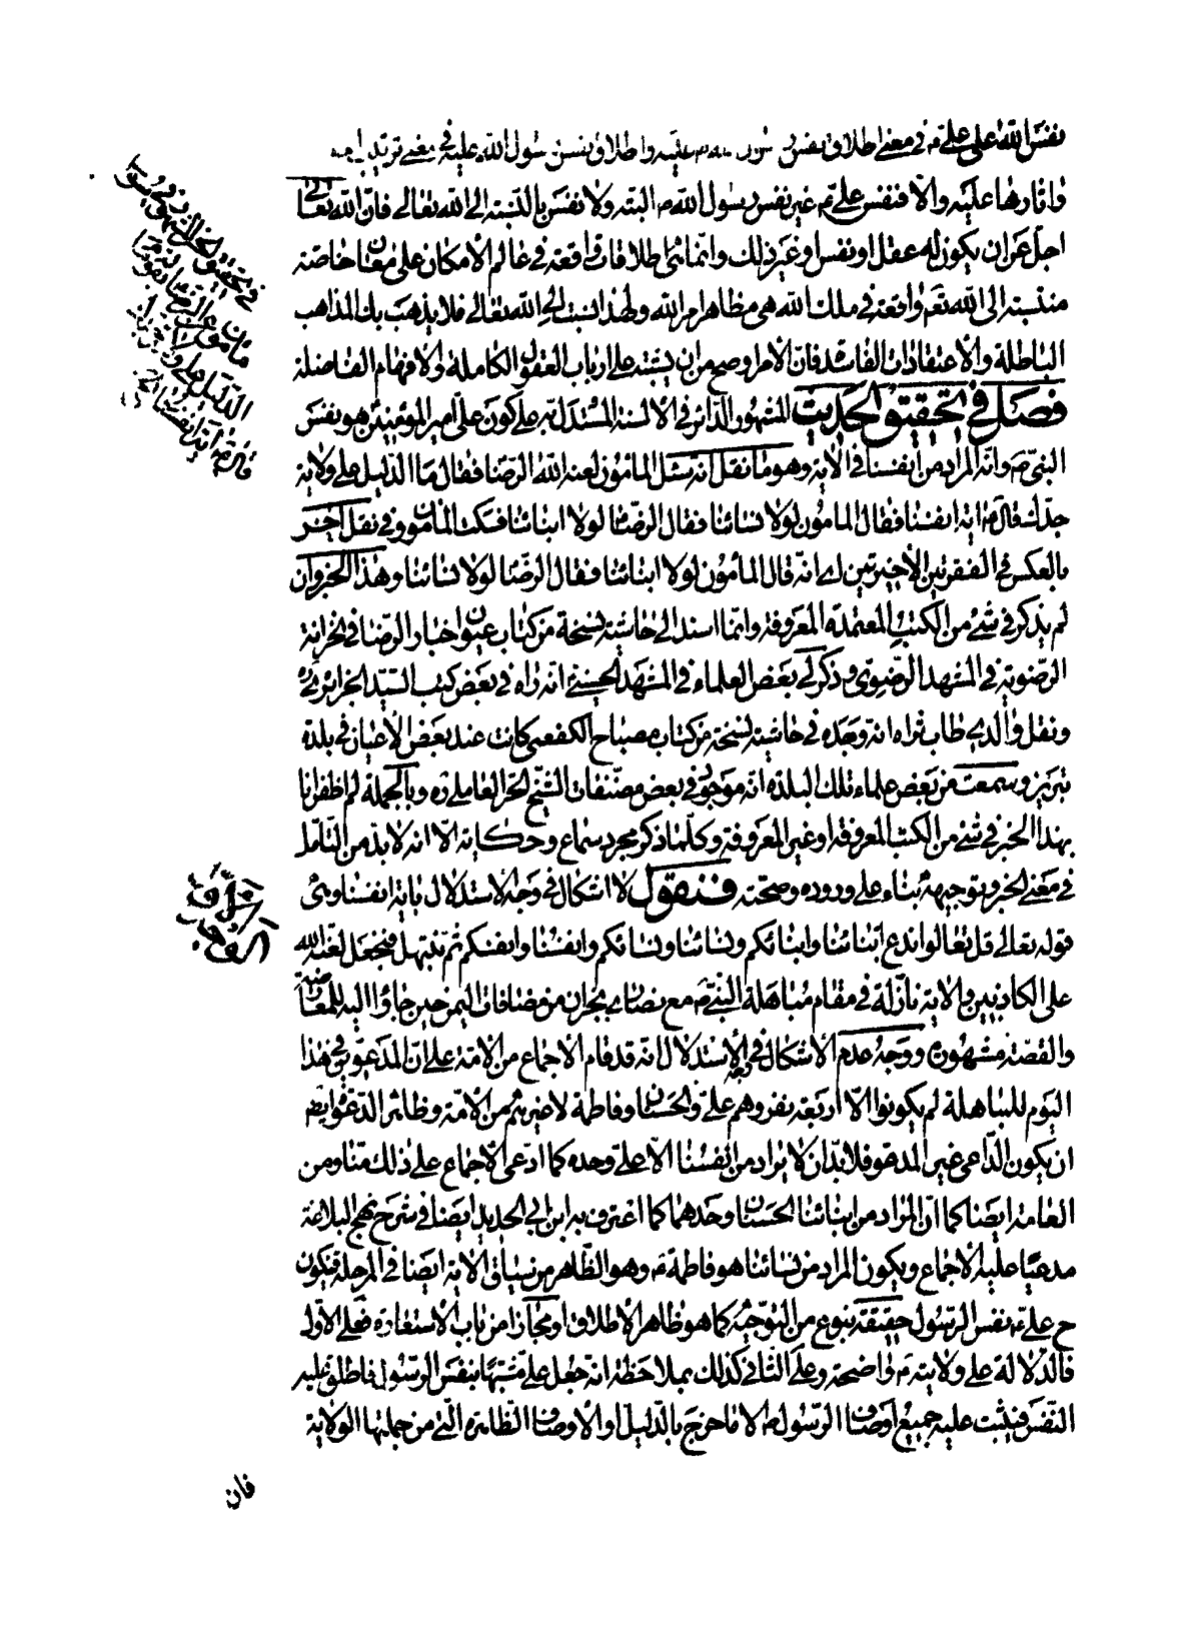 نفس الله على علي م في معنى اطلاق نفس رسول الله م عليه واطلاق نفس رسول الله عليه في معنى ترتيب
واثارها عليه والا فنفس علي م غير نفس رسول الله م البتة ولا نفس بالنسبة الى الله تعالى فان الله تعالى
اجل عن ان يكون له عقل او نفس او غير ذلك وانما تلك اطلاقات واقعة في عالم الامكان على معان خاصة
منتسبة الى الله نعم واقعة في ملك الله هي مظاهر امر الله ولهذا نسبت الى الله تعالى فلا يذهب بك المذاهب
الباطلة والاعتقادات الفاسدة فان الامر اوضح من ان يشتبه على ارباب العقول الكاملة والافهام الفاضلة
فصل في تحقيق الحديث المشهور الدائر في الالسنة المستدل به على كون علي امير المؤمنين هو نفس
النبي ص وانه المراد من انفسنا في الاية وهو ما نقل انه سئل المامون لعنه الله الرضا فقال ما الدليل على ولاية
جدك قال م اية انفسنا فقال المامون لولا نسائنا فقال الرضا لولا ابنائنا فسكت المامون وفي نقل اخر
بالعكس في الفقرتين الاخيرتين اي انه قال المامون لولا ابنائنا فقال الرضا لولا نسائنا وهذا الخبر وان
لم يذكر في شئ من الكتب المعتمدة المعروفة وانما اسند الى حاشية نسخة من كتاب عيون اخبار الرضا في خزانة
الرضوية في المشهد الرضوي وذكر لي بعض العلماء في المشهد الحسيني انه راه في بعض كتب السيد الجزائري ره
ونقل والدي طاب ثراه انه وجده في حاشية نسخة من كتاب مصباح الكفعمي كانت عند بعض الاعيان في بلدة
تبريز وسمعت من بعض علماء تلك البلدة انه موجود في بعض مصنفات الشيخ الحر العاملي ره وبالجملة لم اظفر انا
بهذا الخبر في شئ من الكتب المعروفة او غير المعروفة وكلما ذكر مجرد سماع وحكاية الا انه لا بد من التامل
في معنى الخبر وتوجيهه بناء على وروده وصحته فنقول لا اشكال في وجه الاستدلال باية انفسنا وهي
قوله تعالى قل تعالوا ندع ابنائنا وابنائكم ونسائنا ونسائكم وانفسنا وانفسكم ثم نبتهل فنجعل لعنة الله
على الكاذبين والاية نازلة في مقام مباهلة النبي ص مع نصارى نجران من مضافات اليمن حين جاؤا اليه للمعارضة
والقصة مشهورة ووجه عدم الاشكال في الاستدلال انه قد قام الاجماع من الامة على ان المدعو في هذا
اليوم للمباهلة لم يكونوا الا اربعة نفر وهم علي والحسنان وفاطمة لا غيرهم من الامة وظاهر الدعوة ايض
ان يكون الداعي غير المدعو فلا بد ان لا يراد من انفسنا الا علي وحده كما ادعى الاجماع على ذلك منا ومن
العامة ايضا كما ان المراد من ابنائنا الحسنان وحدهما كما اعترف به ابن ابي الحديد ايضا في شرح نهج البلاغة
مدعيا عليه الاجماع ويكون المراد من نسائنا هو فاطمة م وهو الظاهر من سياق الاية ايضا في المرحلة فيكون
ح علي م نفس الرسول حقيقة بنوع من التوجيه كما هو ظاهر الاطلاق او مجازا من باب الاستعارة فعلى الاول
فالدلالة على ولايته م واضحة وعلى الثاني كذلك بملاحظة انه جعل علي مشبها بنفس الرسول فاطلق عليه
النفس فيثبت عليه جميع اوصاف الرسول ص الا ما خرج بالدليل والاوصاف الظاهرة التي من جملتها الولاية
فان